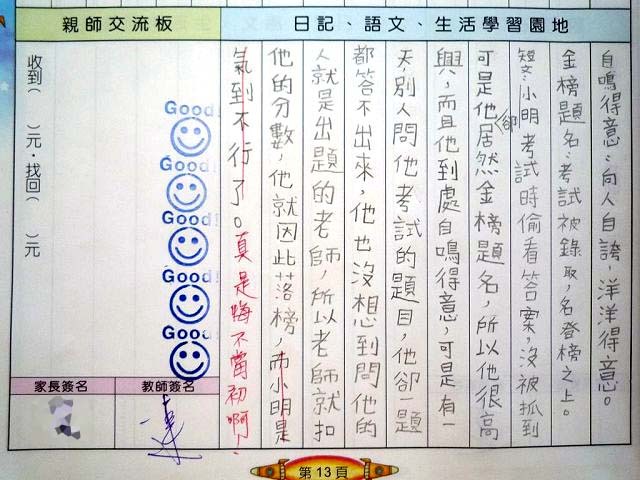 日記、語文、生活學習園地
自鳴得意：向人自誇，洋洋得意。
金榜題名：考試被錄取，名登榜之上。
短文：小明考試時偷看答案，沒被抓到
可是他卻居然金榜題名，所以他很高
興，而且他到處自鳴得意，可是有一
天，別人問他考試的題目，他卻一題
都答不出來，他也沒想到問他的
人就是出題的老師，所以老師就扣
他的分數，他就因此落榜，而小明是
氣到不行了。真是悔不當初啊！
親師交流板
Good!
Good!
Good!
Good!
Good!
收到（ ）元．找回（ ）元
教師簽名
家長簽名
第13頁